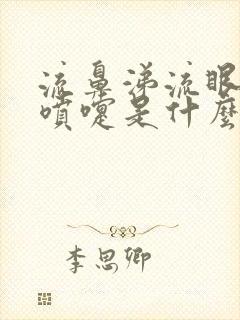 流鼻涕流眼
噴嚏是什麼
李思卿